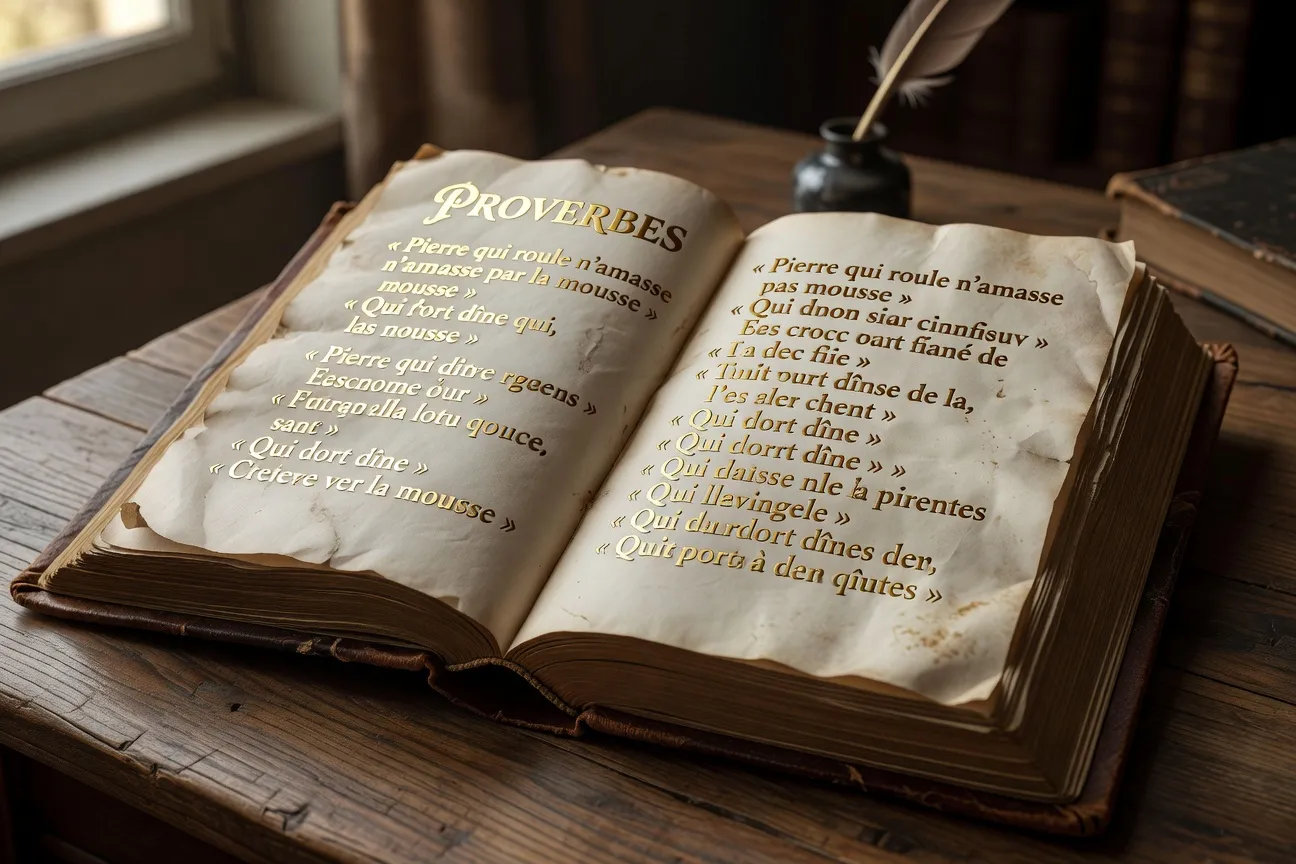 PROVERBES
« Pierre qui roule n'amasse
n'amasse par la mousse »
mousse »
« Qui fort dîne qui,
las nousse »
« Pierre qui dîtve rgeens »
Eescnome óur »
lotu qouce,
sant »
« Qui dort dîne »
« Creteve ver la mousse »
« Pierre qui roule n'amasse
pas mousse »
« Qui dnon siar cinnfisuv »
Ees crocc oart fiané de
« Ta dec fiie »
« Tuit ourt dînse de la,
l'es aler chent »
« Qui dort dîne »
« Qui dorrt dîne » »
« Qui daisse nle la pirentes
« Qui llavingele »
« Qui durdort dînes der,
« Quit porta à den qîutes »